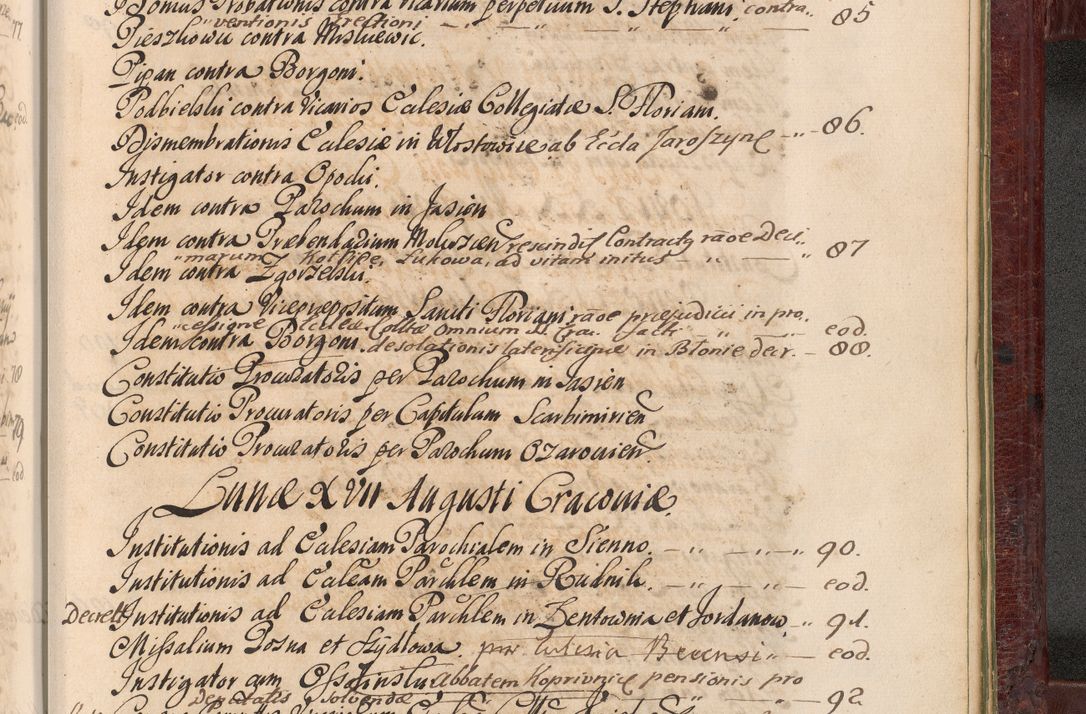 Idomus Probationis contra vicarium perpetuum S. Stephani. contra„
„ventionis erectioni — „ — „ — „ — 85
Pieszkowa contra Misluewic.
Pipan contra Borgoni.
Podbielski contra Vicarios Ecclesiæ Collegiatæ S. Floriani.
Dismembrationis Ecclesiæ in Wlostowice ab Eccla Jaroszyn — „ — 86.
Instigator contra Opocki.
Idem contra Parochum in Jasien
Idem contra Præbendarium Moluszcen rescindis Contracty rãoe Deci„
„marum Kotfice, Lukowa, ad vitam initus — „ — 87
Idem contra Zgorzelski.
Idem contra Vicepræpositum Sancti Floriani rãoe præjudicii in pro„
„cessione Ecclæ Collatæ Omnium SS. Crac. facti — „ — eod.
Idem contra Borgoni desolationis in Błonie decr. — 88.
Constitutio Procuratoris per Parochum in Jasien
Constitutio Procuratoris per Capitulum Scarbimirien
Constitutio Procuratoris per Parochum Ozarovien
Lunæ XVII Augusti Cracoviæ.
Institutionis ad Ecclesiam Parochialem in Sienno. — „ — „ — „ 90.
Institutionis ad Eccleam Parchlem in Rudnik. — „ — „ — eod.
Decrett Institutionis ad Ecclesiam Parchlem in Łentownia et Jordanow. „ 91.
Missalium Posna et Szydlowa. pro Ecclesia — „ — eod.
Instigator cum Abbatem Koprivnice pensionis pro
Deputatis solvendæ — „ — 92.